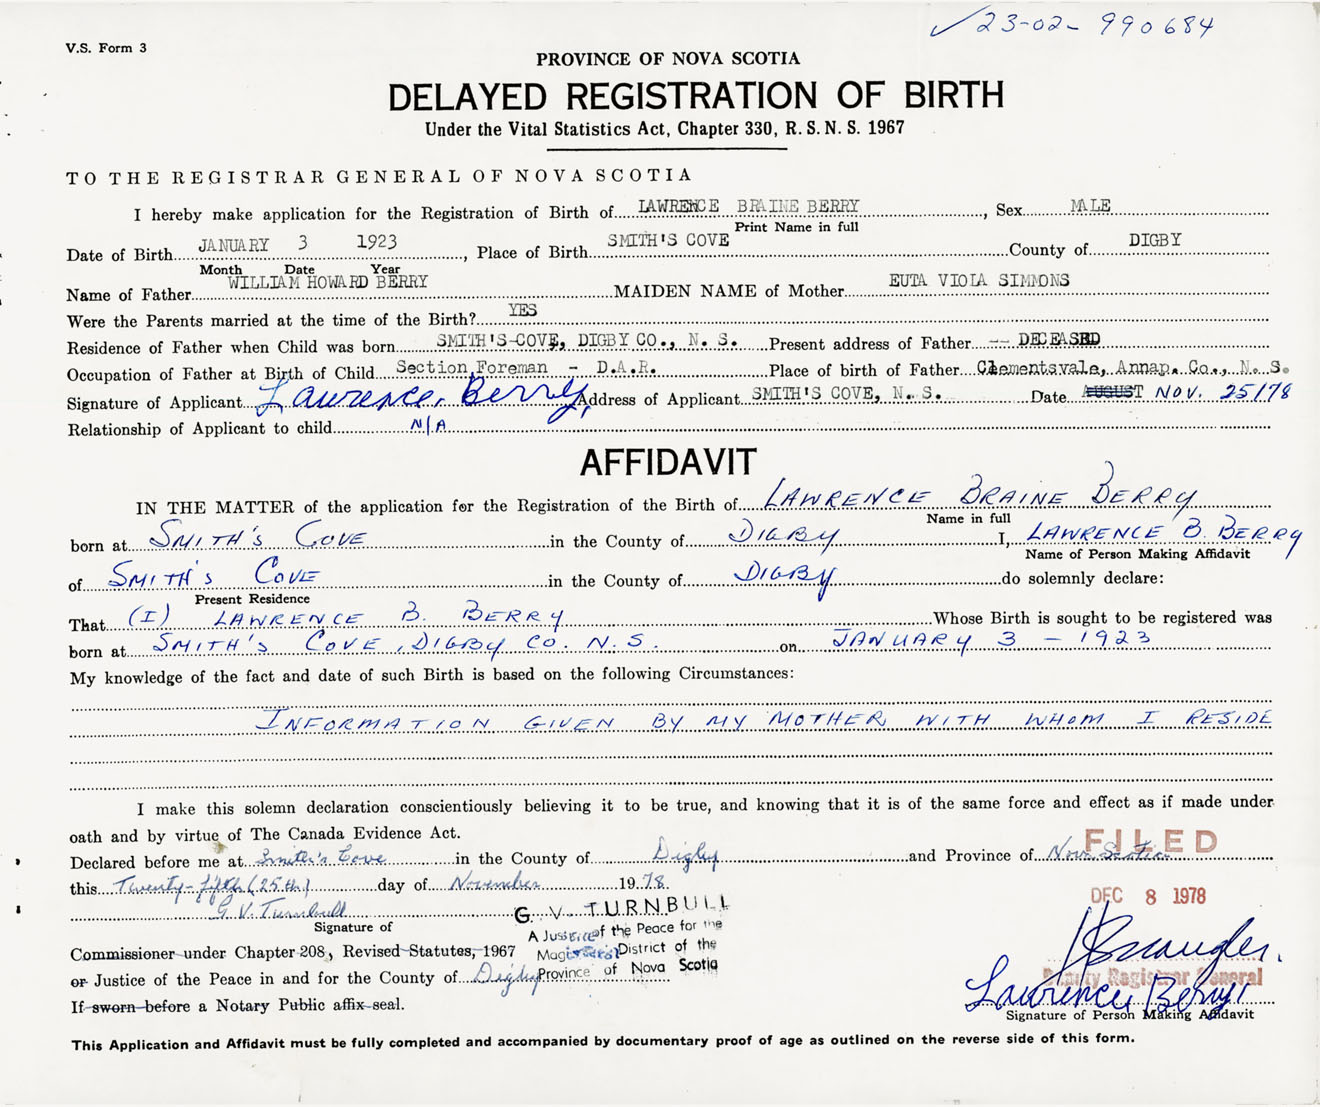 ✓23-02-990684
V.S. Form 3
PROVINCE OF NOVA SCOTIA
DELAYED REGISTRATION OF BIRTH
Under the Vital Statistics Act, Chapter 330, R.S.N.S. 1967
TO THE REGISTRAR GENERAL OF NOVA SCOTIA
I hereby make application for the Registration of Birth of LAWRENCE BRAINE BERRY, Sex MALE
Print Name in full
Date of Birth JANUARY 3 1923, Place of Birth SMITH'S COVE County of DIGBY
Month Date Year
Name of Father WILLIAM HOWARD BERRY MAIDEN NAME of Mother EUTA VIOLA SIMMONS
Were the Parents married at the time of the Birth? YES
Residence of Father when Child was born SMITH'S COVE, DIGBY CO., N. S. Present address of Father -- DECEASED
Occupation of Father at Birth of Child Section Foreman - D.A.R. Place of birth of Father Clementsvale, Annap. Co., N. S.
Signature of Applicant Lawrence Berry Address of Applicant SMITH'S COVE, N. S. Date AUGUST NOV. 25/78
Relationship of Applicant to child N/A
AFFIDAVIT
IN THE MATTER of the application for the Registration of the Birth of LAWRENCE BRAINE BERRY
Name in full
born at SMITH'S COVE in the County of DIGBY I, LAWRENCE B. BERRY
Name of Person Making Affidavit
of SMITH'S COVE in the County of DIGBY do solemnly declare:
Present Residence
That (I) LAWRENCE B. BERRY Whose Birth is sought to be registered was
born at SMITH'S COVE, DIGBY CO. N.S. on JANUARY 3 - 1923
My knowledge of the fact and date of such Birth is based on the following Circumstances:
INFORMATION GIVEN BY MY MOTHER WITH WHOM I RESIDE
I make this solemn declaration conscientiously believing it to be true, and knowing that it is of the same force and effect as if made under
oath and by virtue of The Canada Evidence Act.
FILED
Declared before me at Smith's Cove in the County of Digby and Province of Nova Scotia
this Twenty-fifth (25th) day of November 1978.
DEC 8 1978
G.V. Turnbull
Signature of
G. V. TURNBULL
A Justice of the Peace for the
Magisterial District of the
Province of Nova Scotia
Commissioner under Chapter 208, Revised Statutes, 1967
or Justice of the Peace in and for the County of Digby
If sworn before a Notary Public affix seal.
Deputy Registrar General
Lawrence Berry
Signature of Person Making Affidavit
This Application and Affidavit must be fully completed and accompanied by documentary proof of age as outlined on the reverse side of this form.